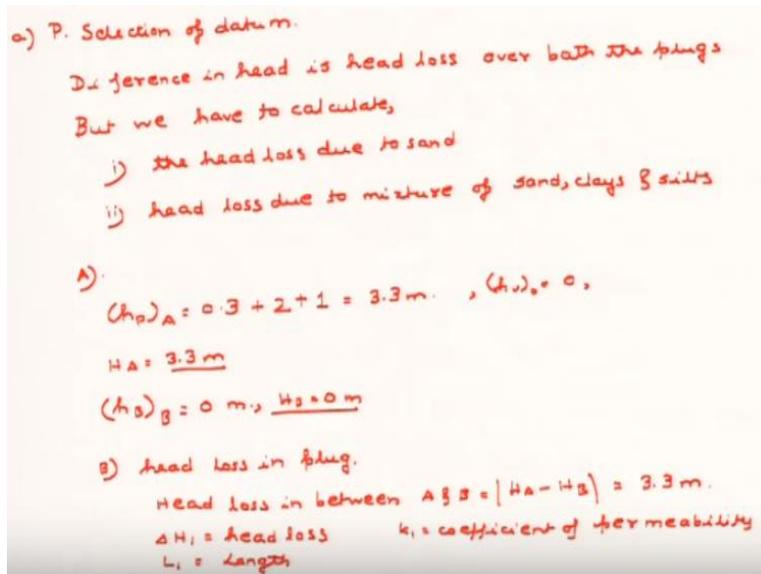 a) P. Selection of datum.
Difference in head is head loss over both the plugs
But we have to calculate,
i) the head loss due to sand
ii) head loss due to mixture of sand, clays & silts
A).
(hp)A = 0.3 + 2 + 1 = 3.3 m. , = 0,
HA = 3.3 m
= 0 m., HB = 0 m
B) head loss in plug.
Head loss in between A & B = |HA - HB| = 3.3 m.
ΔH1 = head loss k1 = coefficient of permeability
L1 = Length